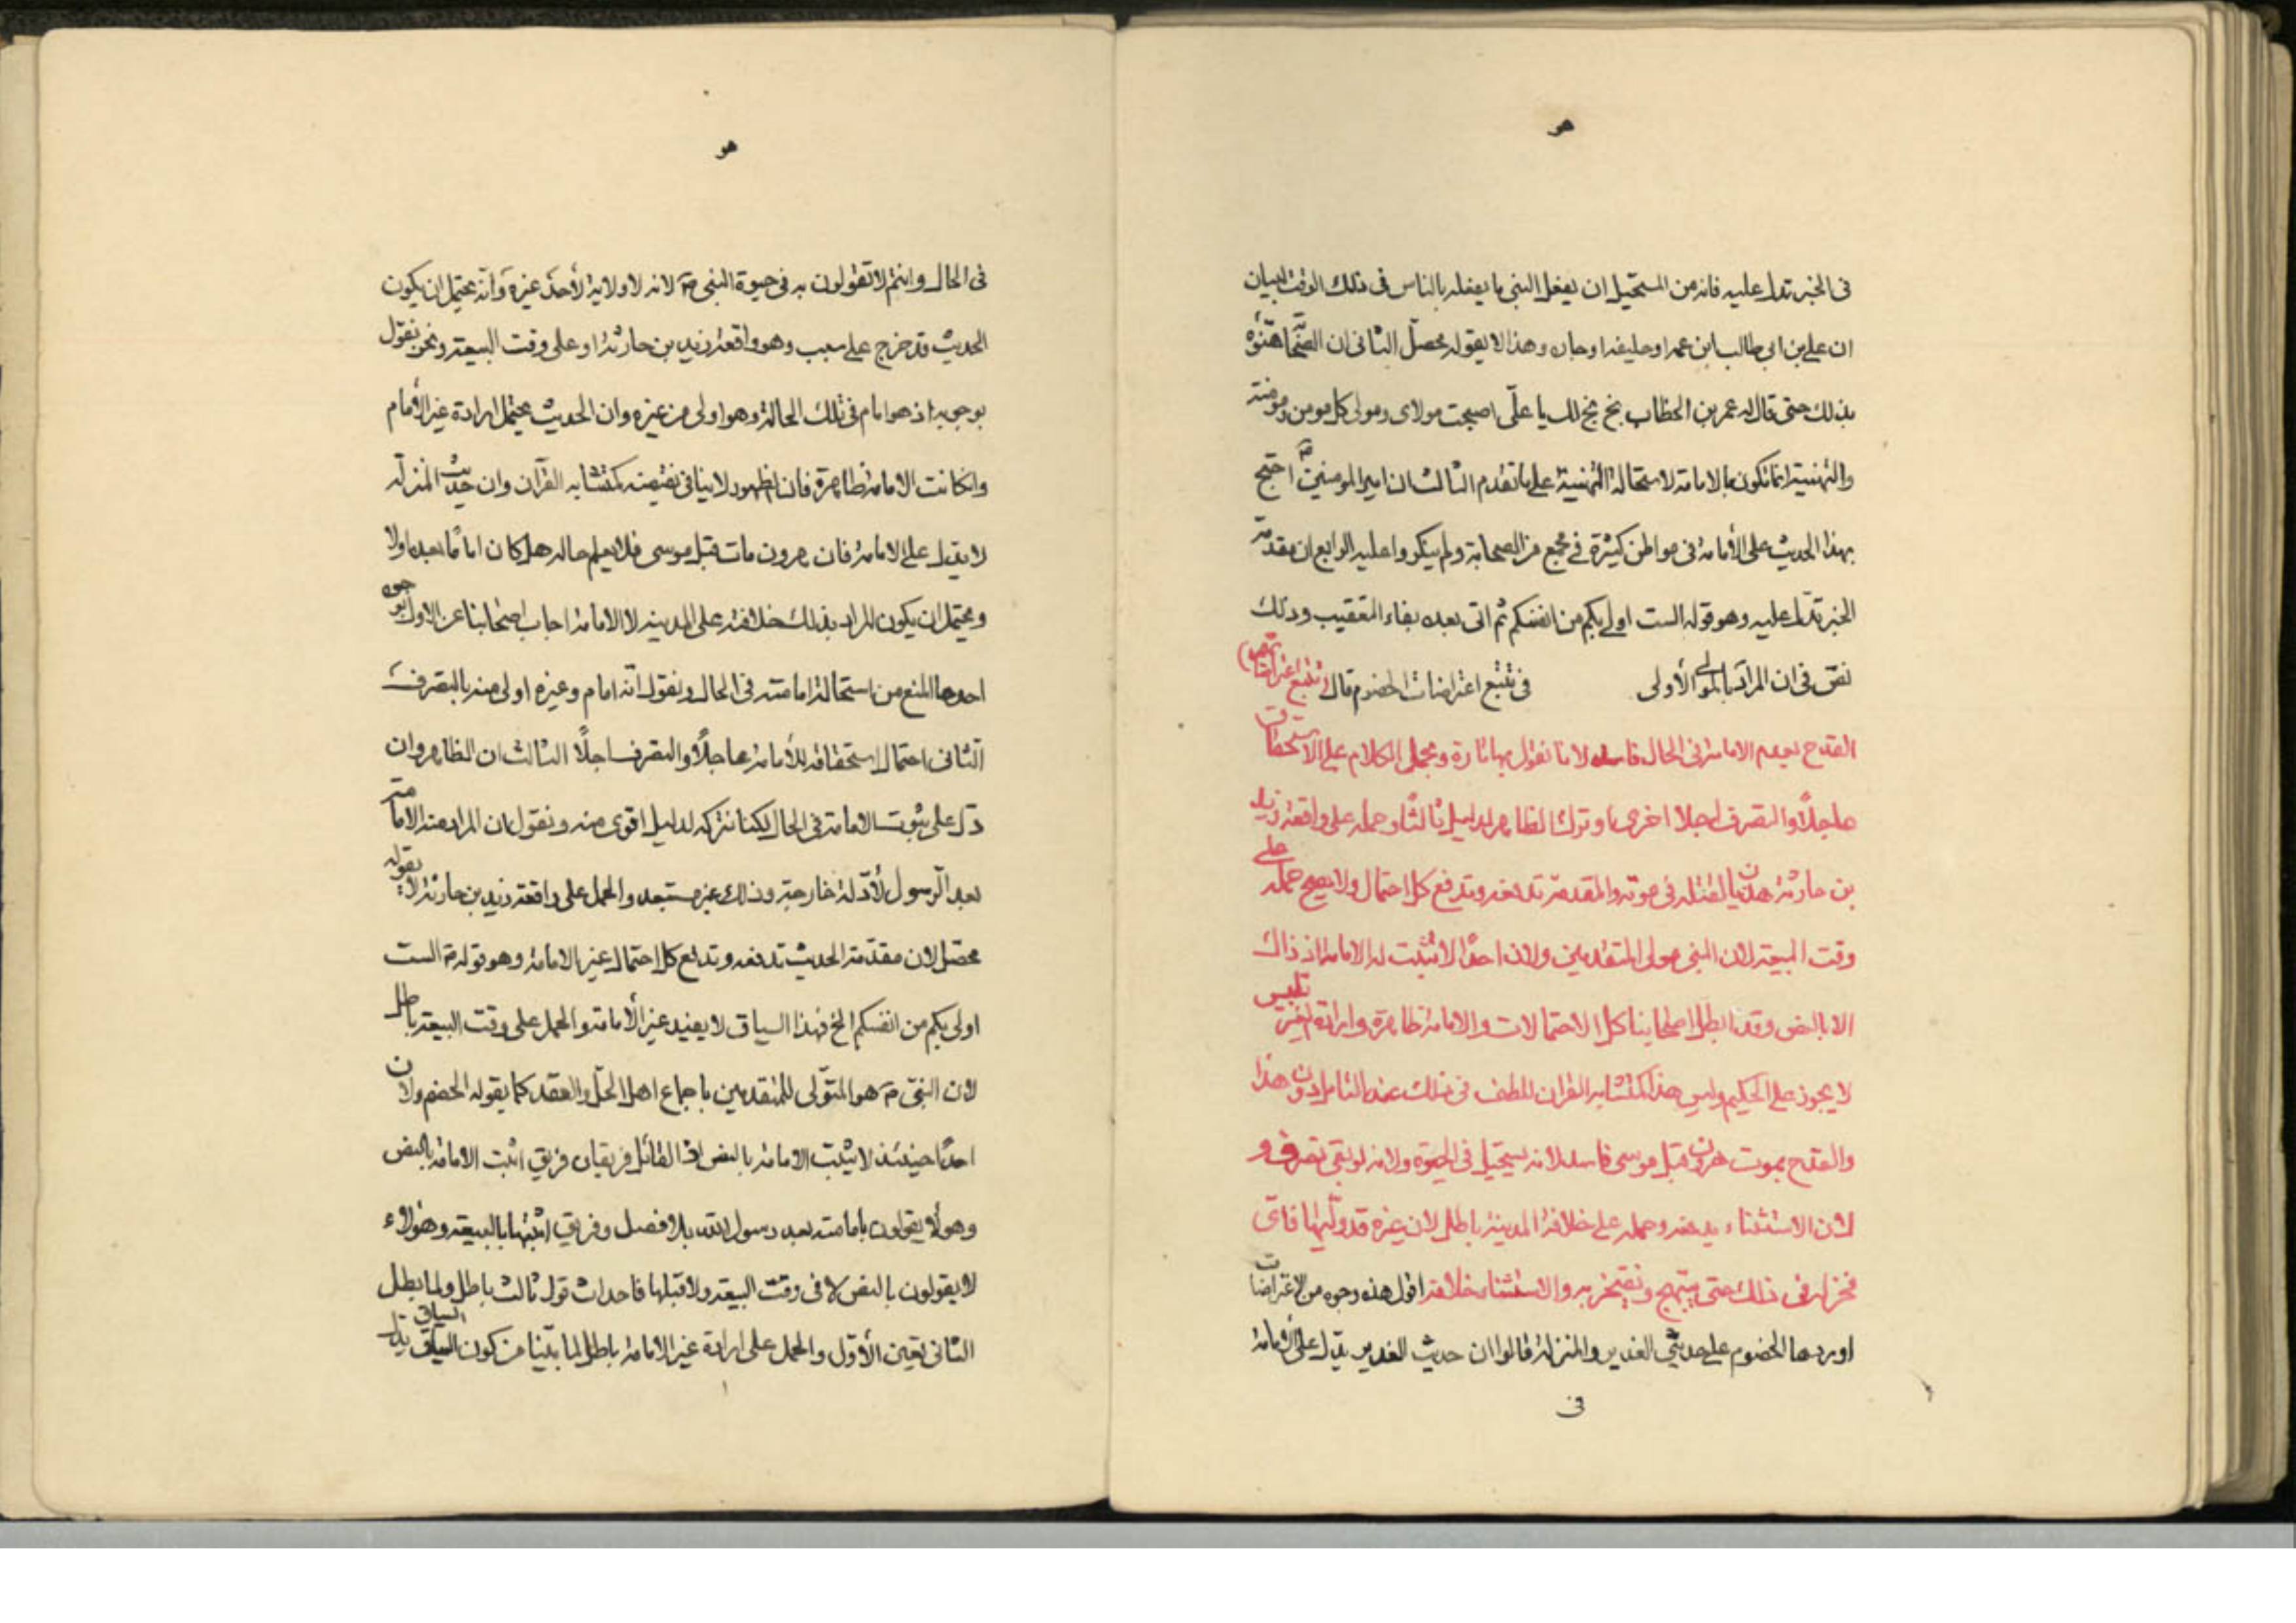 هو
فى الخبر تدل عليه فانه من المستحيل ان يفعل النبى ما يفعله بالناس فى ذلك الوقت لبيان
ان على بن ابى طالب ابن عمه او حليفه او جاره وهذا لا يقوله محصل الثانى ان الصحابة هنؤه
بذلك حتى قال له عمر بن الخطاب بخ بخ لك يا على اصبحت مولاى ومولى كل مومن ومومنة
والتهنية انما تكون بالامامة لاستحالة التهنية على ما تقدم الثالث ان امير المومنين احتج
بهذا الحديث على الأمامة فى مواطن كثيرة فى مجمع من الصحابة ولم ينكروا عليه الرابع ان مقدمة
الخبر تدل عليه وهو قوله الست اولى بكم من انفسكم ثم اتى بعده بفاء التعقيب وذلك
نص فى ان المراد بالمولى الأولى فى تتبع اعتراضات الخصوم قال تتبع اعتراضات
القدح بعدم الامامة فى الحال فاسد لانا نقول بها تارة ونحمل الكلام على الاستحقاق
عاجلًا والتصرف اجلا اخرى ونترك الظاهر لدليل ثالثًا وحمله على واقعة زيد
بن حارثة هذيان لقتله فى موته والمقدمة تدفعه وتدفع كل احتمال ولا يصح حمله على
وقت البيعة لان النبى مولى المتقدمين ولان احدًا لا تثبت له الامامة اذ ذاك
الا بالنص وقد ابطل اصحابنا كل الاحتمالات والامامة ظاهرة وارادة الغير تلبيس
لا يجوز على الحكيم وليس هذا كمتشابه القران للطف فى ذلك عند التامل دون هذا
والقدح بموت هرون قبل موسى فاسد لانه يستحيل فى الحيوة ولانه لو بقى تصرف و
لان الاستثناء يدفعه وحمله على خلافة المدينة باطل لان غيره قد وليها فاى
فخر له فى ذلك حتى يبتهج ويفتخر به والاستثناء خلافه اقول هذه وجوه من الاعتراضات
اوردها الخصوم على حديثى الغدير والمنزلة قالوا ان حديث الغدير يدل على الأمامة
فى
هو
فى الحال وانتم لا تقولون به فى حيوة النبى ص لانه لا ولاية لأحد غيره وانه يحتمل ان يكون
الحديث قد خرج على سبب وهو واقعة زيد بن حارثة او على وقت البيعة ونحن نقول
بوجوبه اذ هو امام فى تلك الحالة وهو اولى من غيره وان الحديث يحتمل ارادة غير الأمام
وان كانت الامامة ظاهرة فان الظهور لا ينافى نقيضه كمتشابه القرآن وان حديث المنزلة
لا يدل على الامامة فان هرون مات قبل موسى فلا يعلم حاله هل كان امامًا بعده او لا
ويحتمل ان يكون المراد بذلك خلافته على المدينة لا الامامة اجاب اصحابنا عن الاول بوجوه
احدها المنع من استحالة امامته فى الحال ونقول انه امام وغيره اولى منه بالتصرف
الثانى احتمال استحقاقه للأمامة عاجلًا والتصرف اجلًا الثالث ان الظاهر وان
دل على ثبوت الامامة فى الحال لكنا نتركه لدليل اقوى منه ونقول ان المراد منه الامامة
بعد الرسول لأدلة خارجة وذلك غير مستبعد والحمل على واقعة زيد بن حارثة لا يقوله
محصل لان مقدمة الحديث تدفعه وتدفع كل احتمال غير الامامة وهو قوله ص الست
اولى بكم من انفسكم الخ فهذا السياق لا يفيد غير الأمامة والحمل على وقت البيعة باطل
لان النبى ص هو المتولى للمتقدمين باجماع اهل الحل والعقد كما يقوله الخصم ولان
احدًا حينئذ لا يثبت الامامة بالنص اذ القائل فريقان فريق اثبت الامامة بالنص
وهولاء يقولون بامامته بعد رسول الله بلا فصل وفريق اثبتها بالبيعة وهؤلاء
لا يقولون بالنص لا فى وقت البيعة ولا قبلها فاحداث قول ثالث باطل ولما بطل
الثانى تعين الأول والحمل على ارادة غير الامامة باطل لما بينا من كون السياق يدل